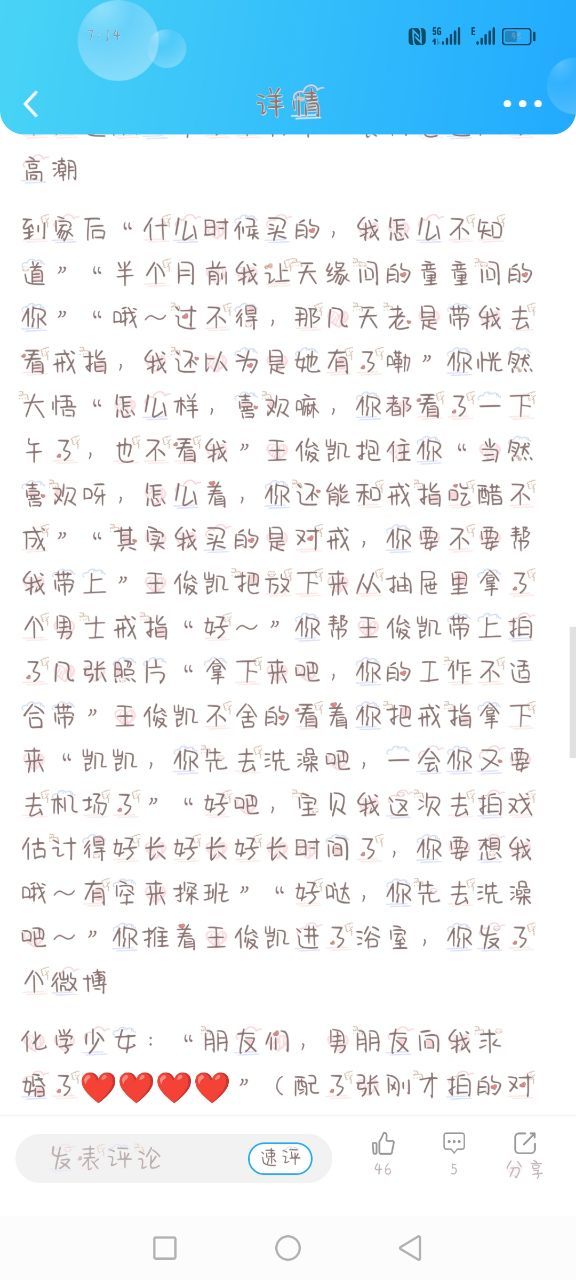 7:14
5G
E
详情
高潮
到家后“什么时候买的，我怎么不知
道”“半个月前我让天缘问的童童问的
你”“哦～过不得，那几天老是带我去
看戒指，我还以为是她有了嘞”你恍然
大悟“怎么样，喜欢嘛，你都看了一下
午了，也不看我”王俊凯抱住你“当然
喜欢呀，怎么着，你还能和戒指吃醋不
成”“其实我买的是对戒，你要不要帮
我带上”王俊凯把放下来从抽屉里拿了
个男士戒指“好～”你帮王俊凯带上拍
了几张照片“拿下来吧，你的工作不适
合带”王俊凯不舍的看着你把戒指拿下
来“凯凯，你先去洗澡吧，一会你又要
去机场了”“好吧，宝贝我这次去拍戏
估计得好长好长好长时间了，你要想我
哦～有空来探班”“好哒，你先去洗澡
吧～”你推着王俊凯进了浴室，你发了
个微博
化学少女：“朋友们，男朋友向我求
婚了❤️❤️❤️❤️”（配了张刚才拍的对
发表评论
速评
46
5
分享